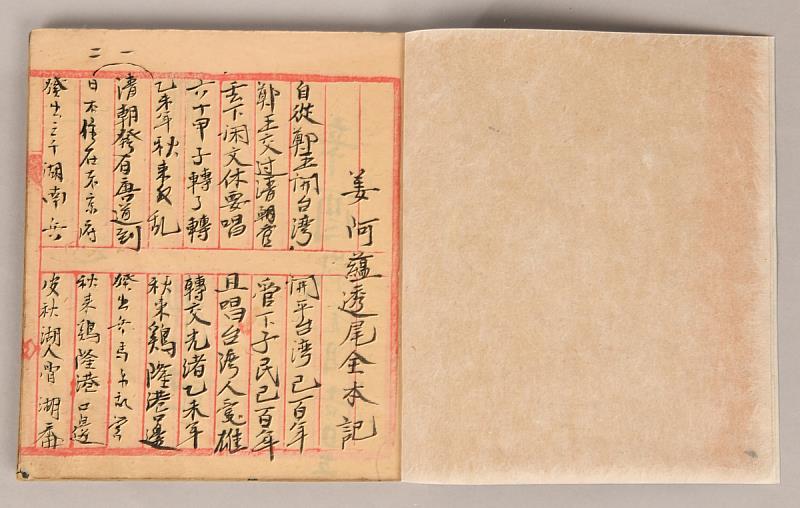 一
二
姜阿蕴透尾全本記
自從鄭王開台灣 開平台湾已百年
鄭王交过清朝管 管下子民已百年
丢下闲文休要唱 且唱台湾人雄
六十甲子轉了轉 轉交光绪乙未年
乙未年秋来反乱 秋来鷄隆港口邊
清朝發有唐道到 發出兵馬
日本在京府 秋来鷄隆港口邊
發出三千湖南兵 皮秋湖人湖